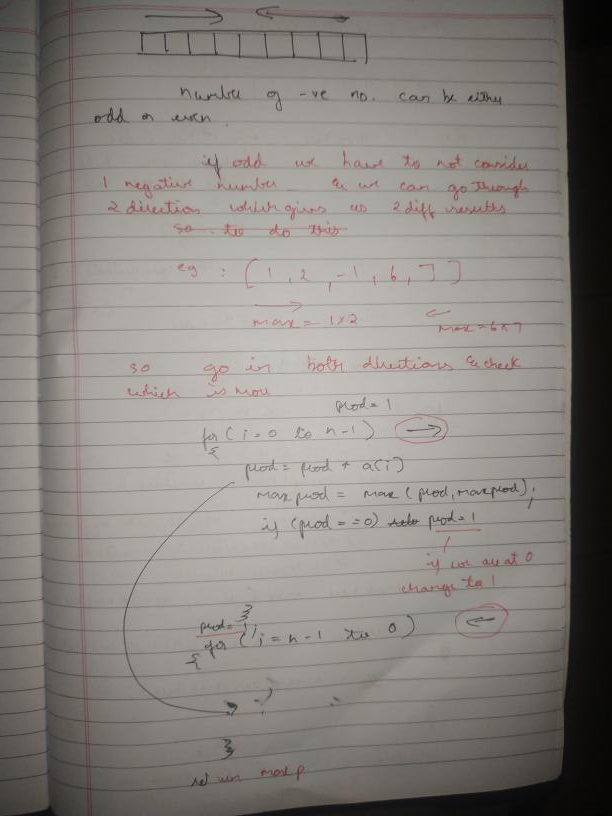 number of -ve no. can be either
odd or even.
if odd we have to not consider
1 negative number & we can go through
2 direction which gives us 2 diff results
so to do this
eg : [ 1 , 2 , -1 , 6 , 7 ]
max = 1x2
max = 6x7
so go in both directions & check
which is more
prod = 1
for ( i = 0 to n-1 )
{
prod = prod * a(i)
maxprod = max ( prod, maxprod );
if (prod == 0) prod = 1
if we are at 0
change to 1
}
prod = 1;
for ( i = n-1 to 0 )
{
}
return maxp